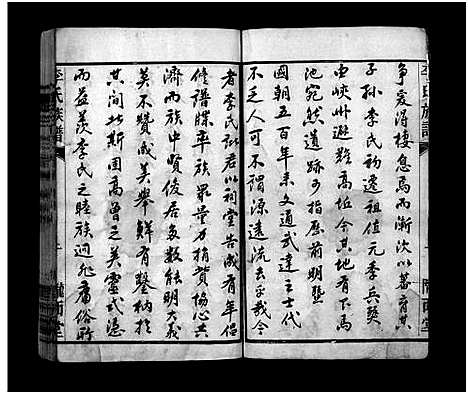 爭爰得棲息焉而漸次以蕃育其
子孫李氏初遷祖值元季兵燹
由峽州避難高坵今其地有下馬
池宛然遺跡可指歷前明暨
國朝五百年來文通武達之士代
不乏人可不謂源遠流長乎哉今
者李氏諸君以祠堂告成有年倡
修譜牒率族眾量力捐貲協心共
濟而族中賢俊居多數能明大義
莫不贊成美舉鮮有鑿枘於
其間此斯固高曾之美靈式憑
而益羨李氏之睦族迥非庸俗所
李氏族譜
隴西堂
李氏族譜
隴西堂